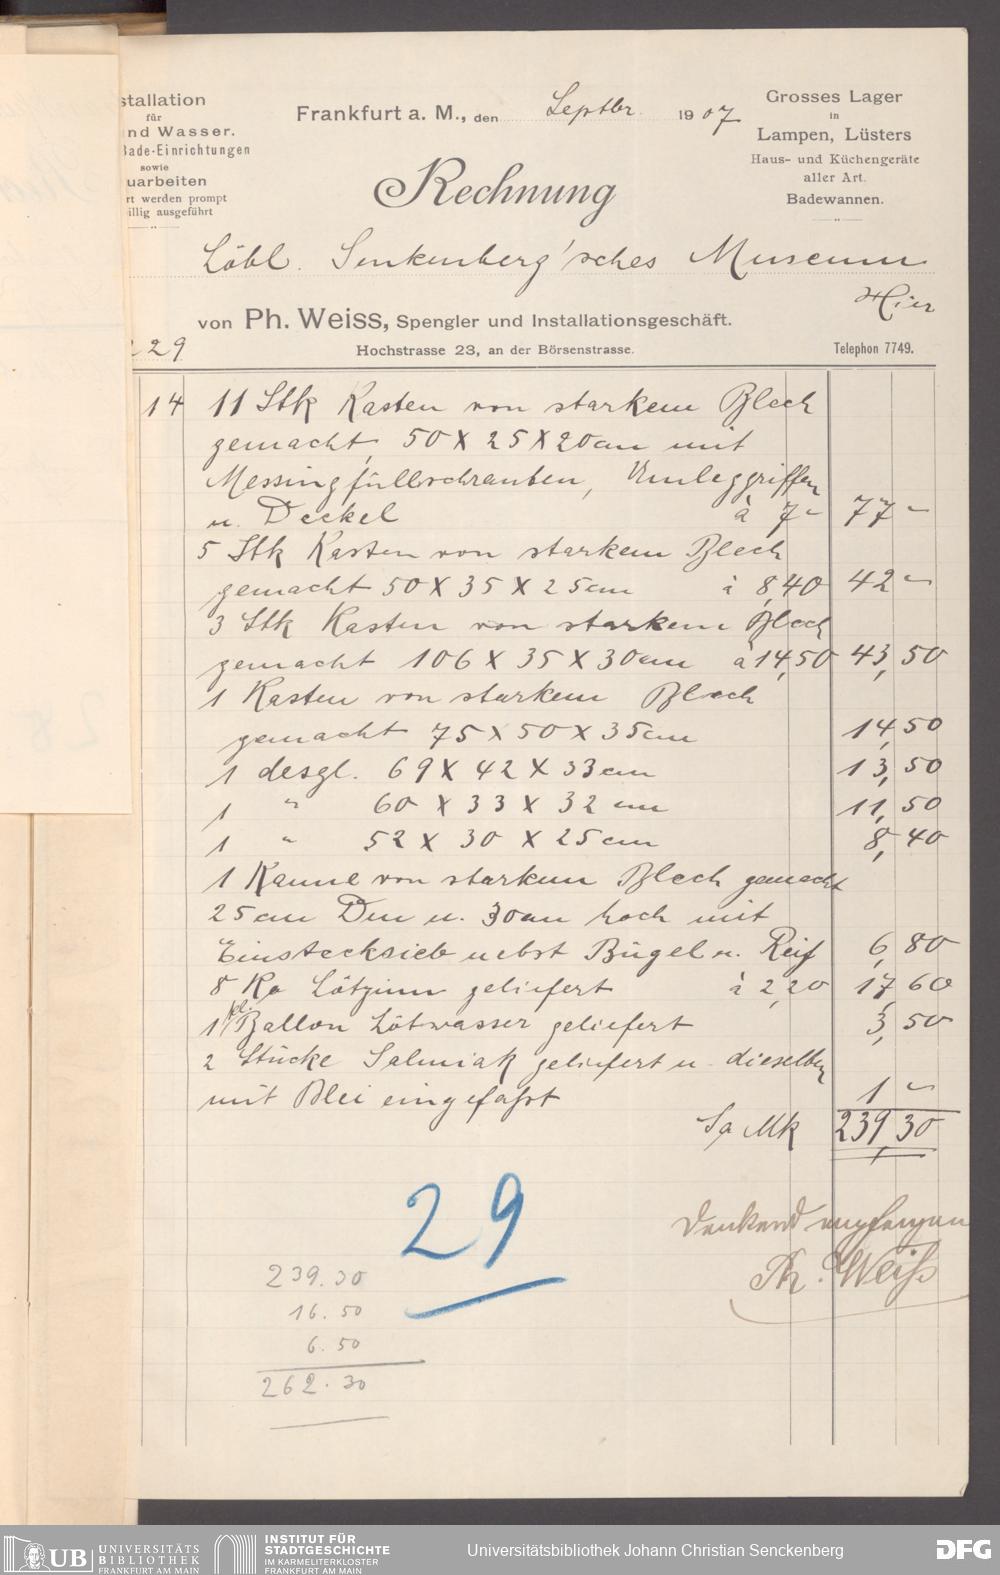 stallation
für
nd Wasser.
Bade-Einrichtungen
sowie
uarbeiten
rt werden prompt
illig ausgeführt
Frankfurt a. M., den Septbr. 1907
Grosses Lager
in
Lampen, Lüsters
Haus- und Küchengeräte
aller Art.
Badewannen.
Rechnung
Löbl. Senkenberg'sches Museum
Hier
von Ph. Weiss, Spengler und Installationsgeschäft.
229
Hochstrasse 23, an der Börsenstrasse.
Telephon 7749.
14 11 Stk Kasten von starkem Blech
gemacht, 50 X 25 X 20 cm mit
Messingfüllschrauben, Umleggriffen
u. Deckel à 7 - 77 -
5 Stk Kasten von starkem Blech
gemacht 50 X 35 X 25 cm à 8,40 42 -
3 Stk Kasten von starkem Blech
gemacht 106 X 35 X 30 cm à 14,50 43,50
1 Kasten von starkem Blech
gemacht 75 X 50 X 35 cm 14,50
1 desgl. 69 X 42 X 33 cm 13,50
1 " 60 X 33 X 32 cm 11,50
1 " 52 X 30 X 25 cm 8,40
1 Kanne von starkem Blech gemacht
25 cm Dm u. 30 cm hoch mit
Einstecksieb nebst Bügel u. Reif 6,80
8 Ko Lötzinn geliefert à 2,20 17,60
1 kl. Ballon Lötwasser geliefert 3,50
2 Stücke Salmiak geliefert u. dieselben
mit Blei eingefaßt 1 -
Sa Mk 239,30
29
Dankend empfangen
Ph. Weiß
239.30
16.50
6.50
262.30
UB UNIVERSITÄTS
BIBLIOTHEK
FRANKFURT AM MAIN
INSTITUT FÜR
STADTGESCHICHTE
IM KARMELITERKLOSTER
FRANKFURT AM MAIN
Universitätsbibliothek Johann Christian Senckenberg
DFG